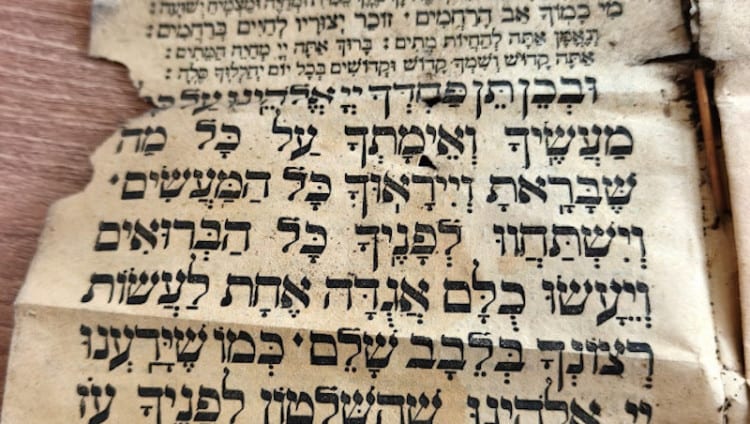 וּמַצְמִיחַ יְשׁוּעָה:
מִי כָמוֹךָ אַב הָרַחֲמִים· זוֹכֵר יְצוּרָיו לְחַיִּים בְּרַחֲמִים:
וְנֶאֱמָן אַתָּה לְהַחֲיוֹת מֵתִים: בָּרוּךְ אַתָּה יְיָ מְחַיֵּה הַמֵּתִים:
אַתָּה קָדוֹשׁ וְשִׁמְךָ קָדוֹשׁ וּקְדוֹשִׁים בְּכָל יוֹם יְהַלְלוּךָ סֶּלָה:
וּבְכֵן תֵּן פַּחְדְּךָ יְיָ אֱלֹהֵינוּ עַל כָּל
מַעֲשֶׂיךָ וְאֵימָתְךָ עַל כָּל מַה
שֶּׁבָּרָאתָ וְיִירָאוּךָ כָּל הַמַּעֲשִׂים·
וְיִשְׁתַּחֲווּ לְפָנֶיךָ כָּל הַבְּרוּאִים
וְיֵעָשׂוּ כֻלָּם אֲגֻדָּה אֶחָת לַעֲשׂוֹת
רְצוֹנְךָ בְּלֵבָב שָׁלֵם· כְּמוֹ שֶׁיָּדַעְנוּ
יְיָ אֱלֹהֵינוּ שֶׁהַשִּׁלְטוֹן לְפָנֶיךָ עֹז